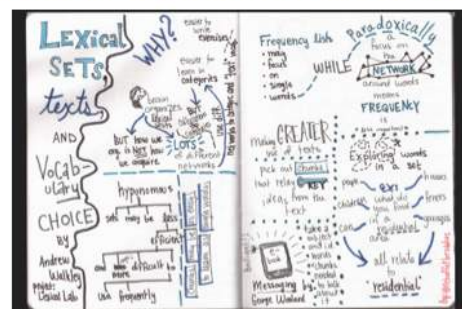 LEXICAL
SETS,
texts,
AND
VOCAB-
ULARY
CHOICE
BY
Andrew
Walkley
Lexical Lab
WHY?
easier to
write
exercises
easier to
learn in
categories
brain
organizes
BUT
BUT how we
org. is NOT how
we acquire
LOTS
of different
networks
hyponomous
sets may be less
efficient
and more difficult to
use frequently
Frequency lists
• may
• focus
• on
• single
• words
WHILE
Paradoxically
a
focus on
the
NETWORK
around words
means
FREQUENCY
is
making GREATER
use of texts
pick out chunks
that relay KEY
ideas from the
text
Exploring words
in a set
people
children
houses
fences
garages
what do
you find
in a
residential
area
all relate
to
"residential"
e-
book
Messaging by
George Woolard
take a
subject
and id
words
chunks
needed
to talk
about
it